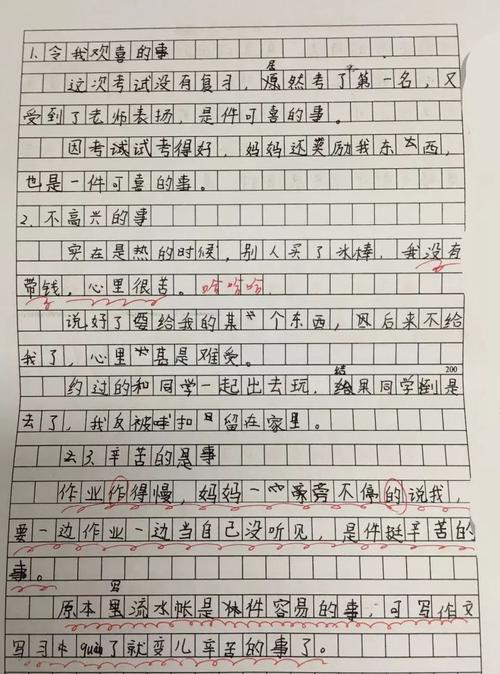 1.令我欢喜的事
这次考试没有复习，居然考了第一名，又
受到了老师表扬，是件可喜的事。
因考试试考得好，妈妈还奖励我东西，
也是一件可喜的事。
2.不高兴的事
实在是热的时候，别人买了冰棒，我没有
带钱，心里很苦。哈哈哈
说好了要给我的某个东西，因后来不给
我了，心里甚是难受。
约过的和同学一起出去玩，结果同学倒是
200
去了，我反被扣留在家里。
辛苦的事
作业作得慢，妈妈一旁不停的说我，
要一边作业一边当自己没听见，是件挺辛苦的
事。
原本写流水帐是件容易的事，可写作文
写习quan了就变儿辛苦的事了。